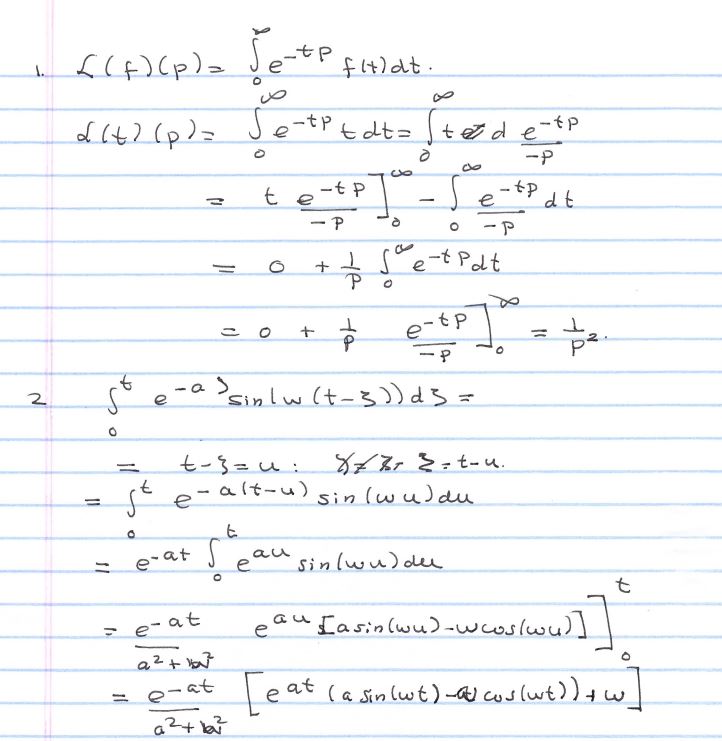 1. L(f)(p) = ∫₀^∞ e^{-tp} f(t)dt.
L(t)(p) = ∫₀^∞ e^{-tp} t dt = ∫₀^∞ t d e^{-tp}/-p
= t e^{-tp}/-p ]₀^∞ - ∫₀^∞ e^{-tp}/-p dt
= 0 + 1/p ∫₀^∞ e^{-tp} dt
= 0 + 1/p e^{-tp}/-p ]₀^∞ = 1/p².
2 ∫₀^t e^{-aξ} sin(w(t-ξ))dξ =
= t-ξ=u: ξ=t-u.
= ∫₀^t e^{-a(t-u)} sin(wu)du
= e^{-at} ∫₀^t e^{au} sin(wu)du
= e^{-at}/a²+w² e^{au} [a sin(wu)-w cos(wu)] ]₀^t
= e^{-at}/a²+w² [e^{at} (a sin(wt)-w cos(wt))+w]